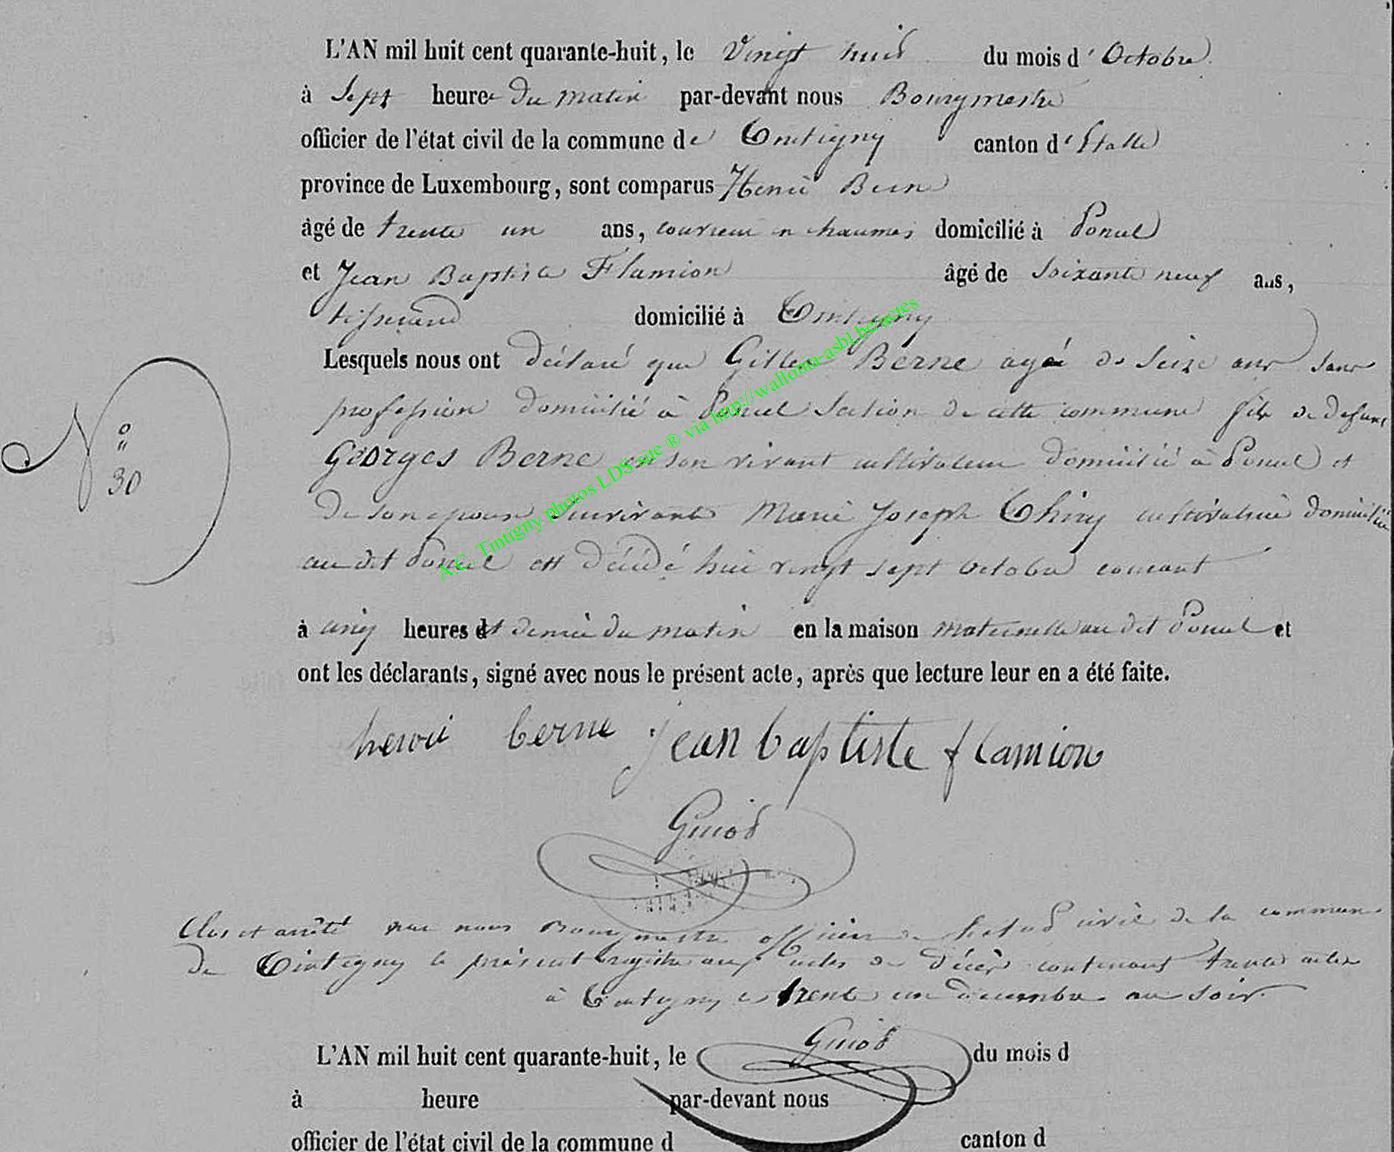 L'AN mil huit cent quarante-huit, le Vingt huit du mois d'Octobre
à Sept heure du matin par-devant nous Bourgmestre
officier de l'état civil de la commune de Tintigny canton d'Etalle
province de Luxembourg, sont comparus Henri Berne
âgé de trente un ans, couvreur en chaumes domicilié à Poncel
et Jean Baptiste Flamion âgé de soixante neuf ans,
tisserand domicilié à Tintigny
Lesquels nous ont déclaré que Gilles Berne agé de seize ans sans
profession domicilié à Poncel section de cette commune fils de defunt
N° 30
Georges Berne en son vivant cultivateur domicilié à Poncel et
de son epouse survivante Marie Joseph Thiry cultivatrice domiciliée
au dit Poncel est décédé hui vingt sept octobre courant
à cinq heures et demie du matin en la maison maternelle au dit Poncel et
ont les déclarants, signé avec nous le présent acte, après que lecture leur en a été faite.
henri berne jean baptiste flamion
Guiod
Clos et arrêté par nous Bourgmestre officier de l'etat civil de la commune
de Tintigny le présent registre aux actes de décès contenant trente actes
à Tintigny le trente un decembre au soir.
Guiod
L'AN mil huit cent quarante-huit, le du mois d
à heure par-devant nous
officier de l'état civil de la commune d canton d
A.C. Tintigny photos LDS site ® via http://wallonia-asbl.be/actes